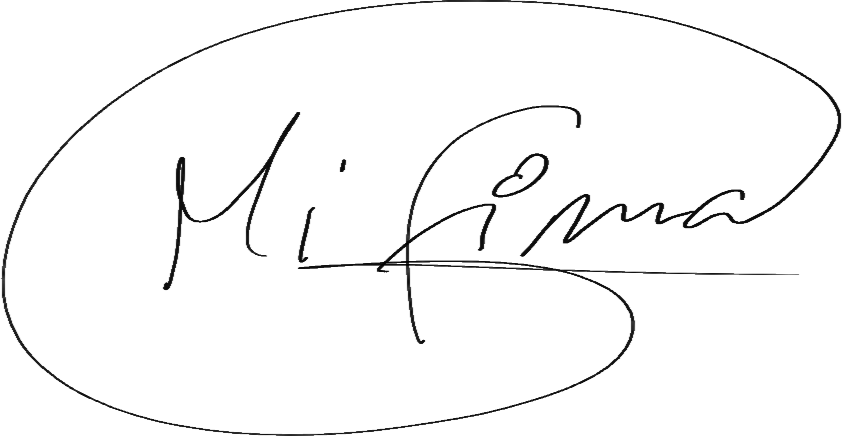 Mi firma